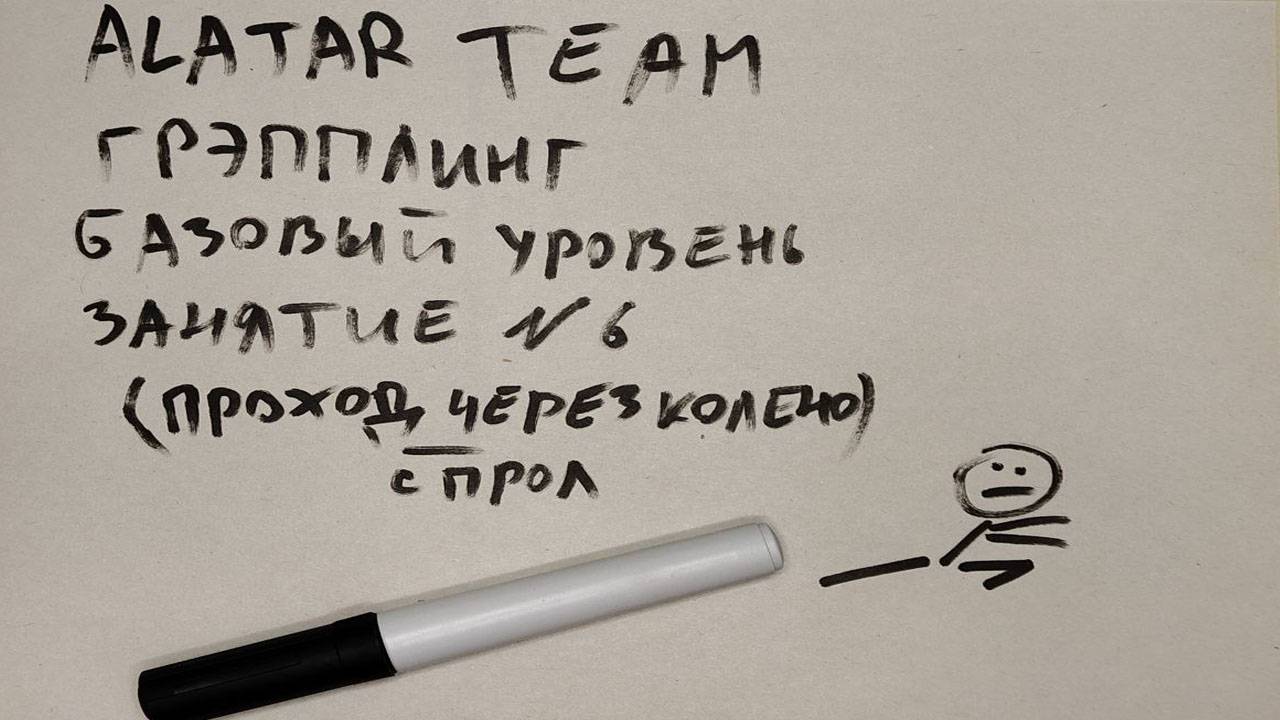 ALATAR TEAM
ГРЭППЛИНГ
БАЗОВЫЙ УРОВЕНЬ
ЗАНЯТИЕ №6
(ПРОХОД ЧЕРЕЗ КОЛЕНО)
СПРОЛ